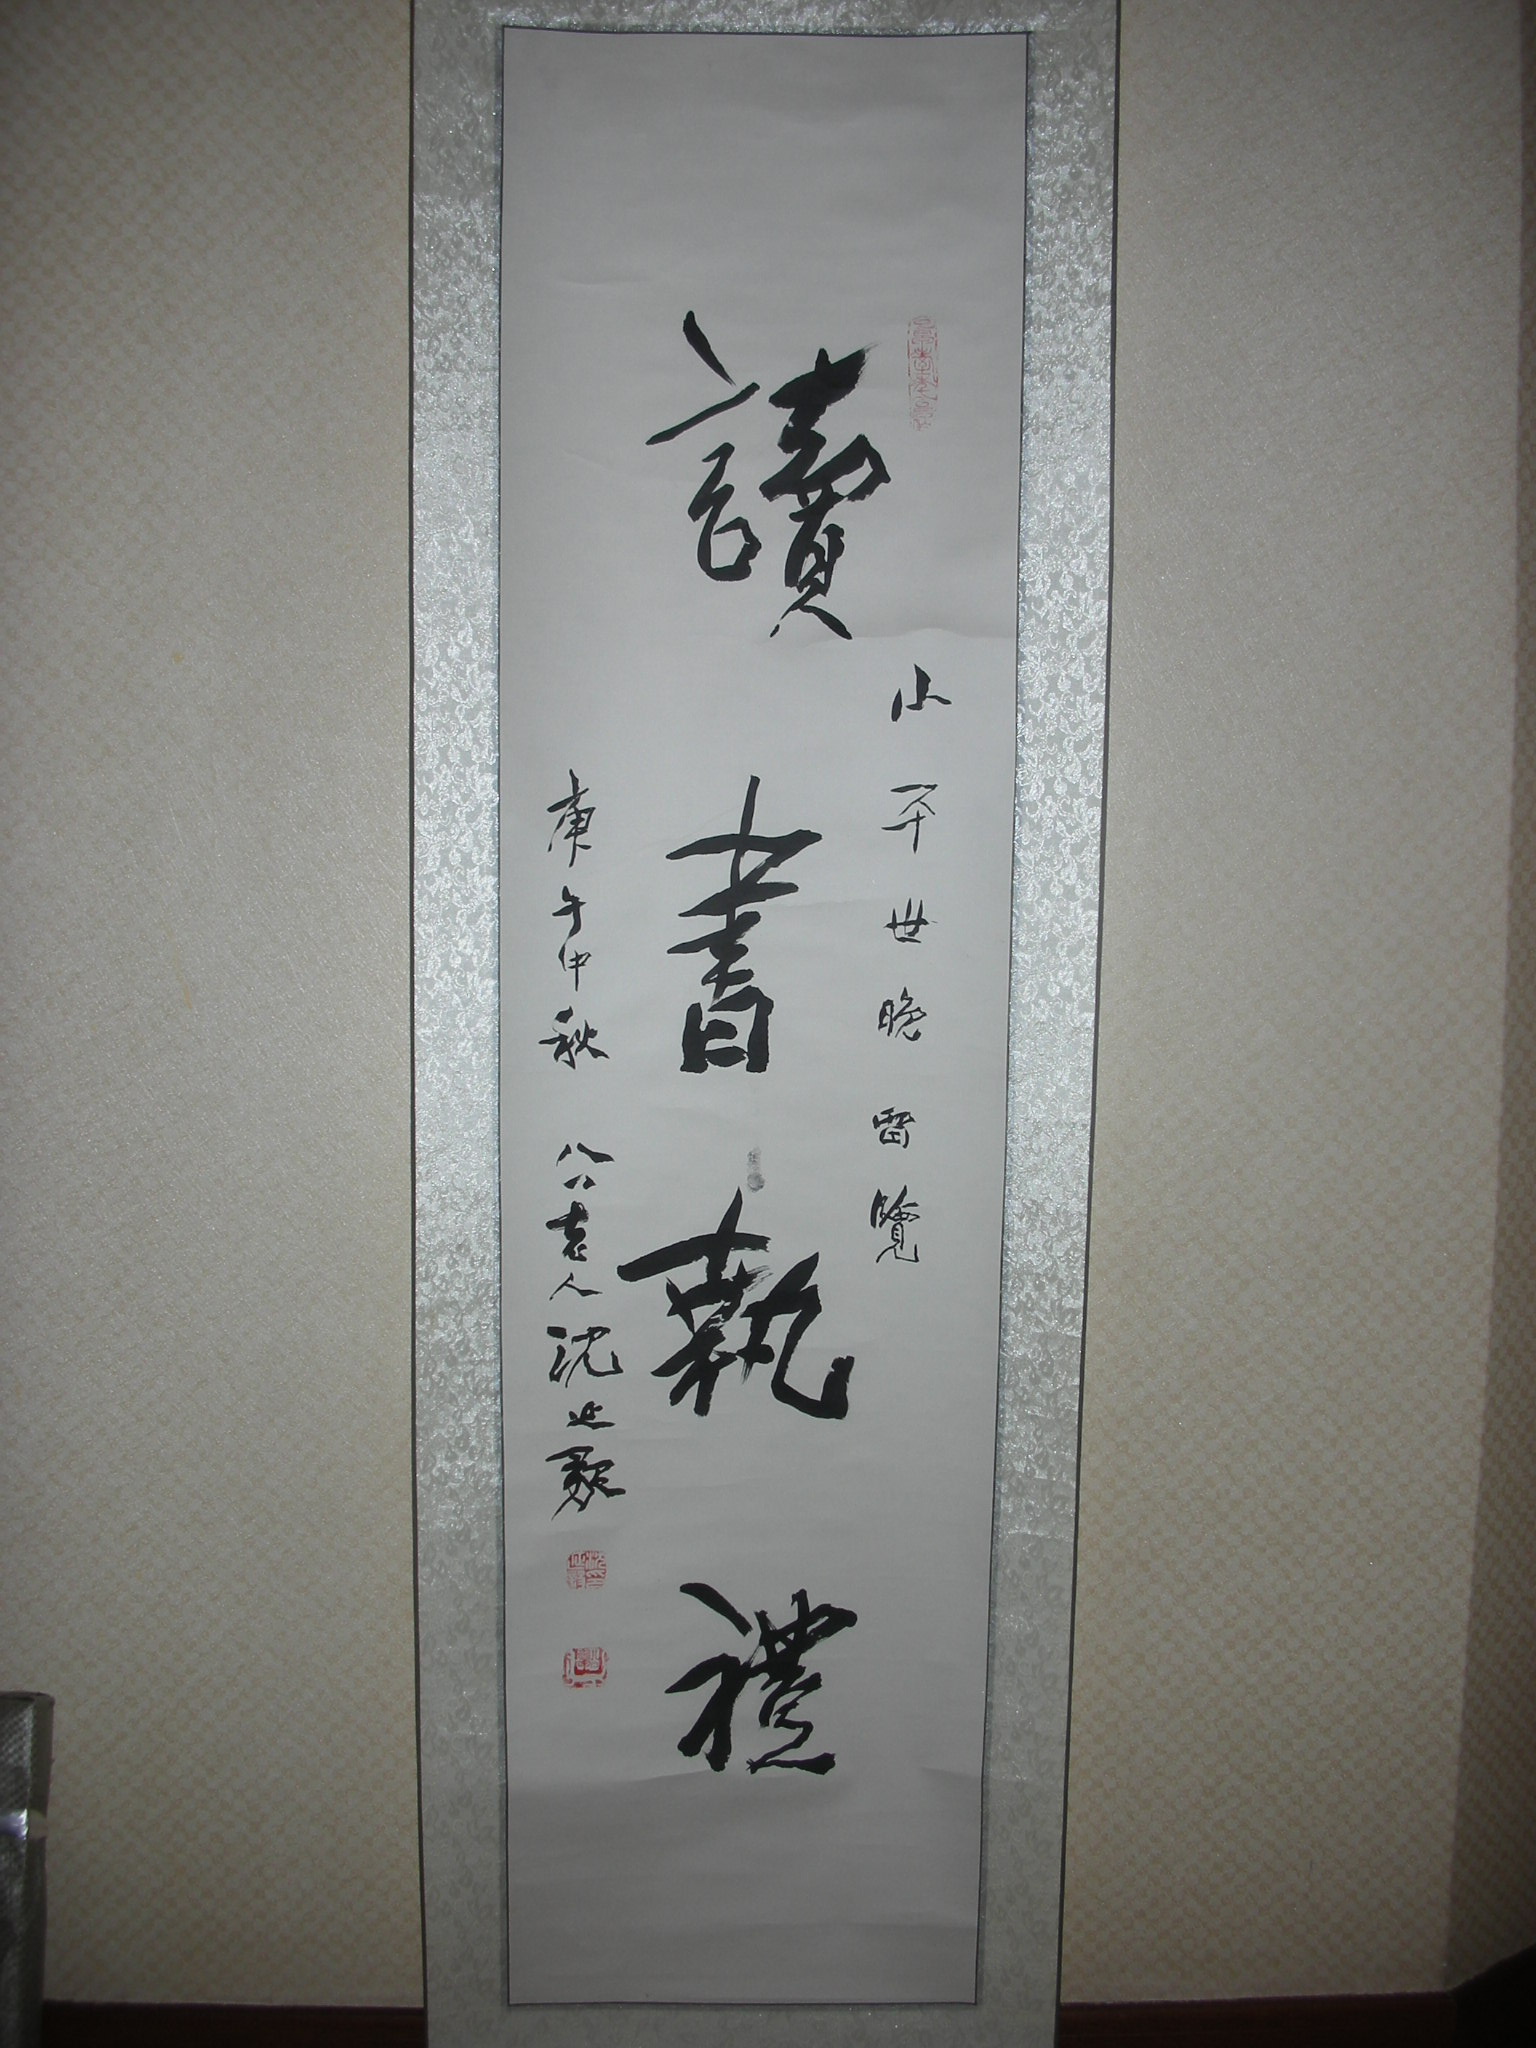 小平世晚留覽
讀書執禮
庚午中秋 八六老人沈延毅